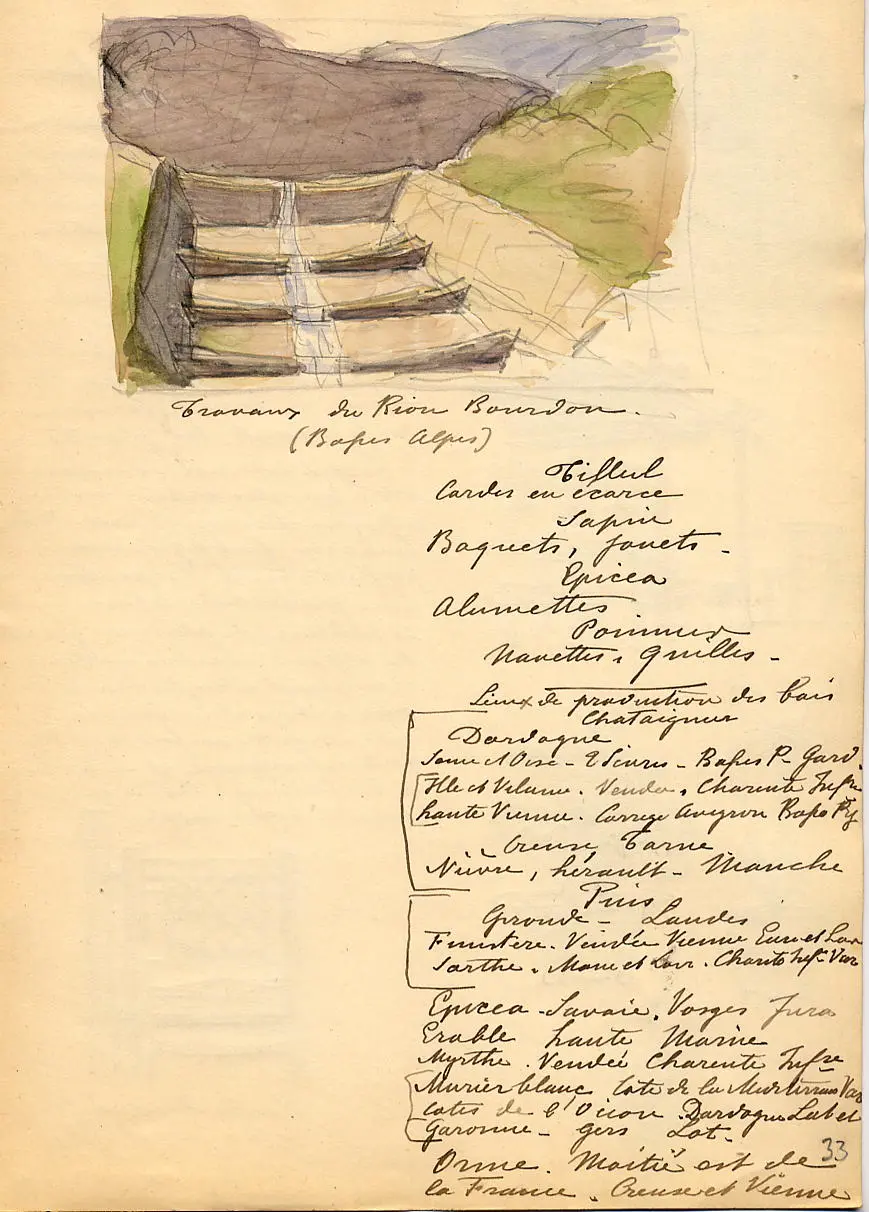 Travaux du Riou Bourdon.
(Basses Alpes)
Tilleul
Cordes en écorce
Sapin
Baquets, jouets -
Epicea
Alumettes
Pommier
Navettes, Quilles -
Lieux de production des bois
Chataignier
Dordogne
Seine et Oise - 2 Sèvres - Basses P- Gard.
Ille et Vilaine. Vendée, Charente Infre
haute Vienne. Correze Aveyron Basses Py
Creuse, Tarne
Nièvre, hérault - Manche
Pins
Gironde - Landes
Finistere. Vendée Vienne Eure et Loir
Sarthe. Maine et Loir. Charente Infre Var
Epicea - Savoie, Vosges Jura
Erable haute Marne
Myrthe. Vendée Charente Infre
Murier blanc Cote de la Var
Cotes de l'Ocean. Dordogne Lot et
Garonne - gers Lot-
Orme. Moitié est de
la France. Creuse et Vienne
33